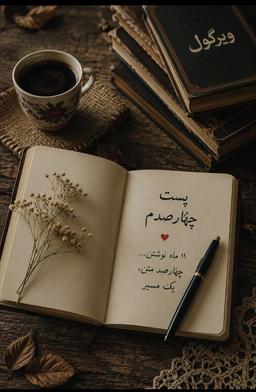 ویرگول
پست
چهارصدم
۱۱ ماه نوشتن...
چهارصد متن،
یک مسیر